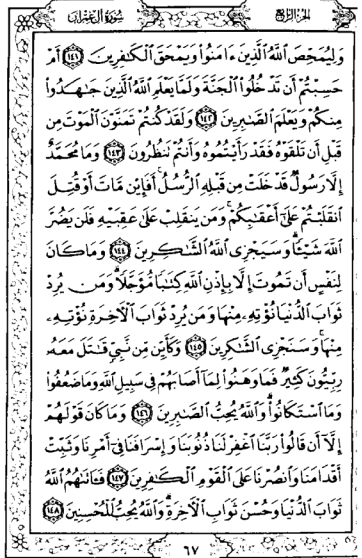 الجزء الرابع
سورة آل عمران
وَلِيُمَحِّصَ ٱللَّهُ ٱلَّذِينَ ءَامَنُوا۟ وَيَمْحَقَ ٱلْكَٰفِرِينَ ١٤١ أَمْ
حَسِبْتُمْ أَن تَدْخُلُوا۟ ٱلْجَنَّةَ وَلَمَّا يَعْلَمِ ٱللَّهُ ٱلَّذِينَ جَٰهَدُوا۟
مِنكُمْ وَيَعْلَمَ ٱلصَّٰبِرِينَ ١٤٢ وَلَقَدْ كُنتُمْ تَمَنَّوْنَ ٱلْمَوْتَ مِن
قَبْلِ أَن تَلْقَوْهُ فَقَدْ رَأَيْتُمُوهُ وَأَنتُمْ تَنظُرُونَ ١٤٣ وَمَا مُحَمَّدٌ
إِلَّا رَسُولٌ قَدْ خَلَتْ مِن قَبْلِهِ ٱلرُّسُلُ أَفَإِي۟ن مَّاتَ أَوْ قُتِلَ
ٱنقَلَبْتُمْ عَلَىٰٓ أَعْقَٰبِكُمْ وَمَن يَنقَلِبْ عَلَىٰ عَقِبَيْهِ فَلَن يَضُرَّ
ٱللَّهَ شَيْـًٔا وَسَيَجْزِى ٱللَّهُ ٱلشَّٰكِرِينَ ١٤٤ وَمَا كَانَ
لِنَفْسٍ أَن تَمُوتَ إِلَّا بِإِذْنِ ٱللَّهِ كِتَٰبًا مُّؤَجَّلًا وَمَن يُرِدْ
ثَوَابَ ٱلدُّنْيَا نُؤْتِهِۦ مِنْهَا وَمَن يُرِدْ ثَوَابَ ٱلْءَاخِرَةِ نُؤْتِهِۦ
مِنْهَا وَسَنَجْزِى ٱلشَّٰكِرِينَ ١٤٥ وَكَأَيِّن مِّن نَّبِىٍّ قَٰتَلَ مَعَهُۥ
رِبِّيُّونَ كَثِيرٌ فَمَا وَهَنُوا۟ لِمَآ أَصَابَهُمْ فِى سَبِيلِ ٱللَّهِ وَمَا ضَعُفُوا۟
وَمَا ٱسْتَكَانُوا۟ وَٱللَّهُ يُحِبُّ ٱلصَّٰبِرِينَ ١٤٦ وَمَا كَانَ قَوْلَهُمْ
إِلَّآ أَن قَالُوا۟ رَبَّنَا ٱغْفِرْ لَنَا ذُنُوبَنَا وَإِسْرَافَنَا فِىٓ أَمْرِنَا وَثَبِّتْ
أَقْدَامَنَا وَٱنصُرْنَا عَلَى ٱلْقَوْمِ ٱلْكَٰفِرِينَ ١٤٧ فَـَٔاتَىٰهُمُ ٱللَّهُ
ثَوَابَ ٱلدُّنْيَا وَحُسْنَ ثَوَابِ ٱلْءَاخِرَةِ وَٱللَّهُ يُحِبُّ ٱلْمُحْسِنِينَ ١٤٨
٦٧